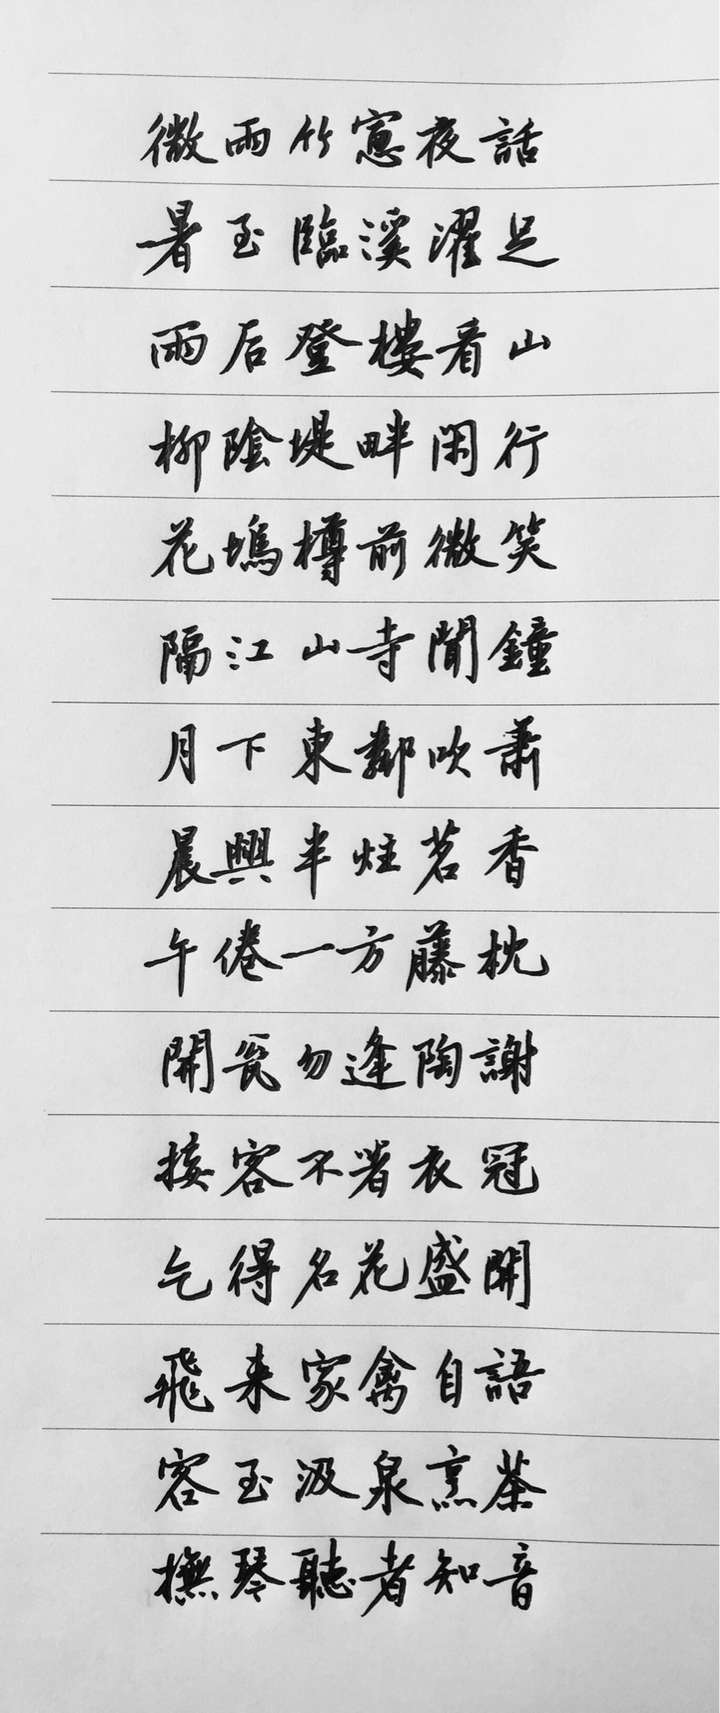 微雨竹窻夜話
暑至臨溪濯足
雨后登樓看山
柳陰堤畔閑行
花塢樽前微笑
隔江山寺聞鐘
月下東鄰吹蕭
晨興半炷茗香
午倦一方藤枕
開瓮勿逢陶謝
接客不著衣冠
乞得名花盛開
飛来家禽自語
客至汲泉烹茶
撫琴聽者知音